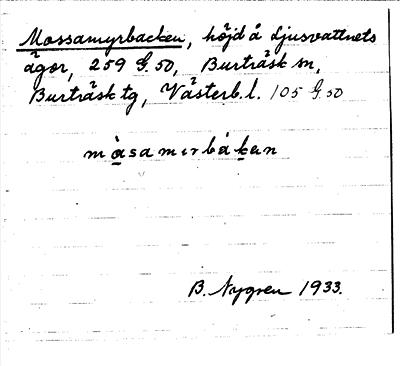 Mossamyrbacken, höjd å Ljusvattnets
ägor, 259 G. 50, Burträsk sn,
Burträsk tg, Västerb. l. 105 G. 50
måsamɪrbákɐn
B. Nygren 1933.